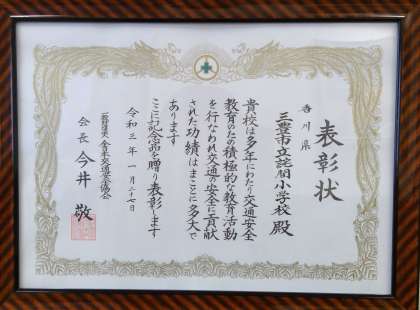 表彰状
香川県
三豊市立詫間小学校 殿
貴校は多年にわたり交通安全
教育のための積極的な教育活動
を行なわれ交通の安全に貢献
された功績はまことに多大で
あります
ここに記念品を贈り表彰します
令和三年一月二十七日
一般財団法人 全日本交通安全協会
会長 今井 敬